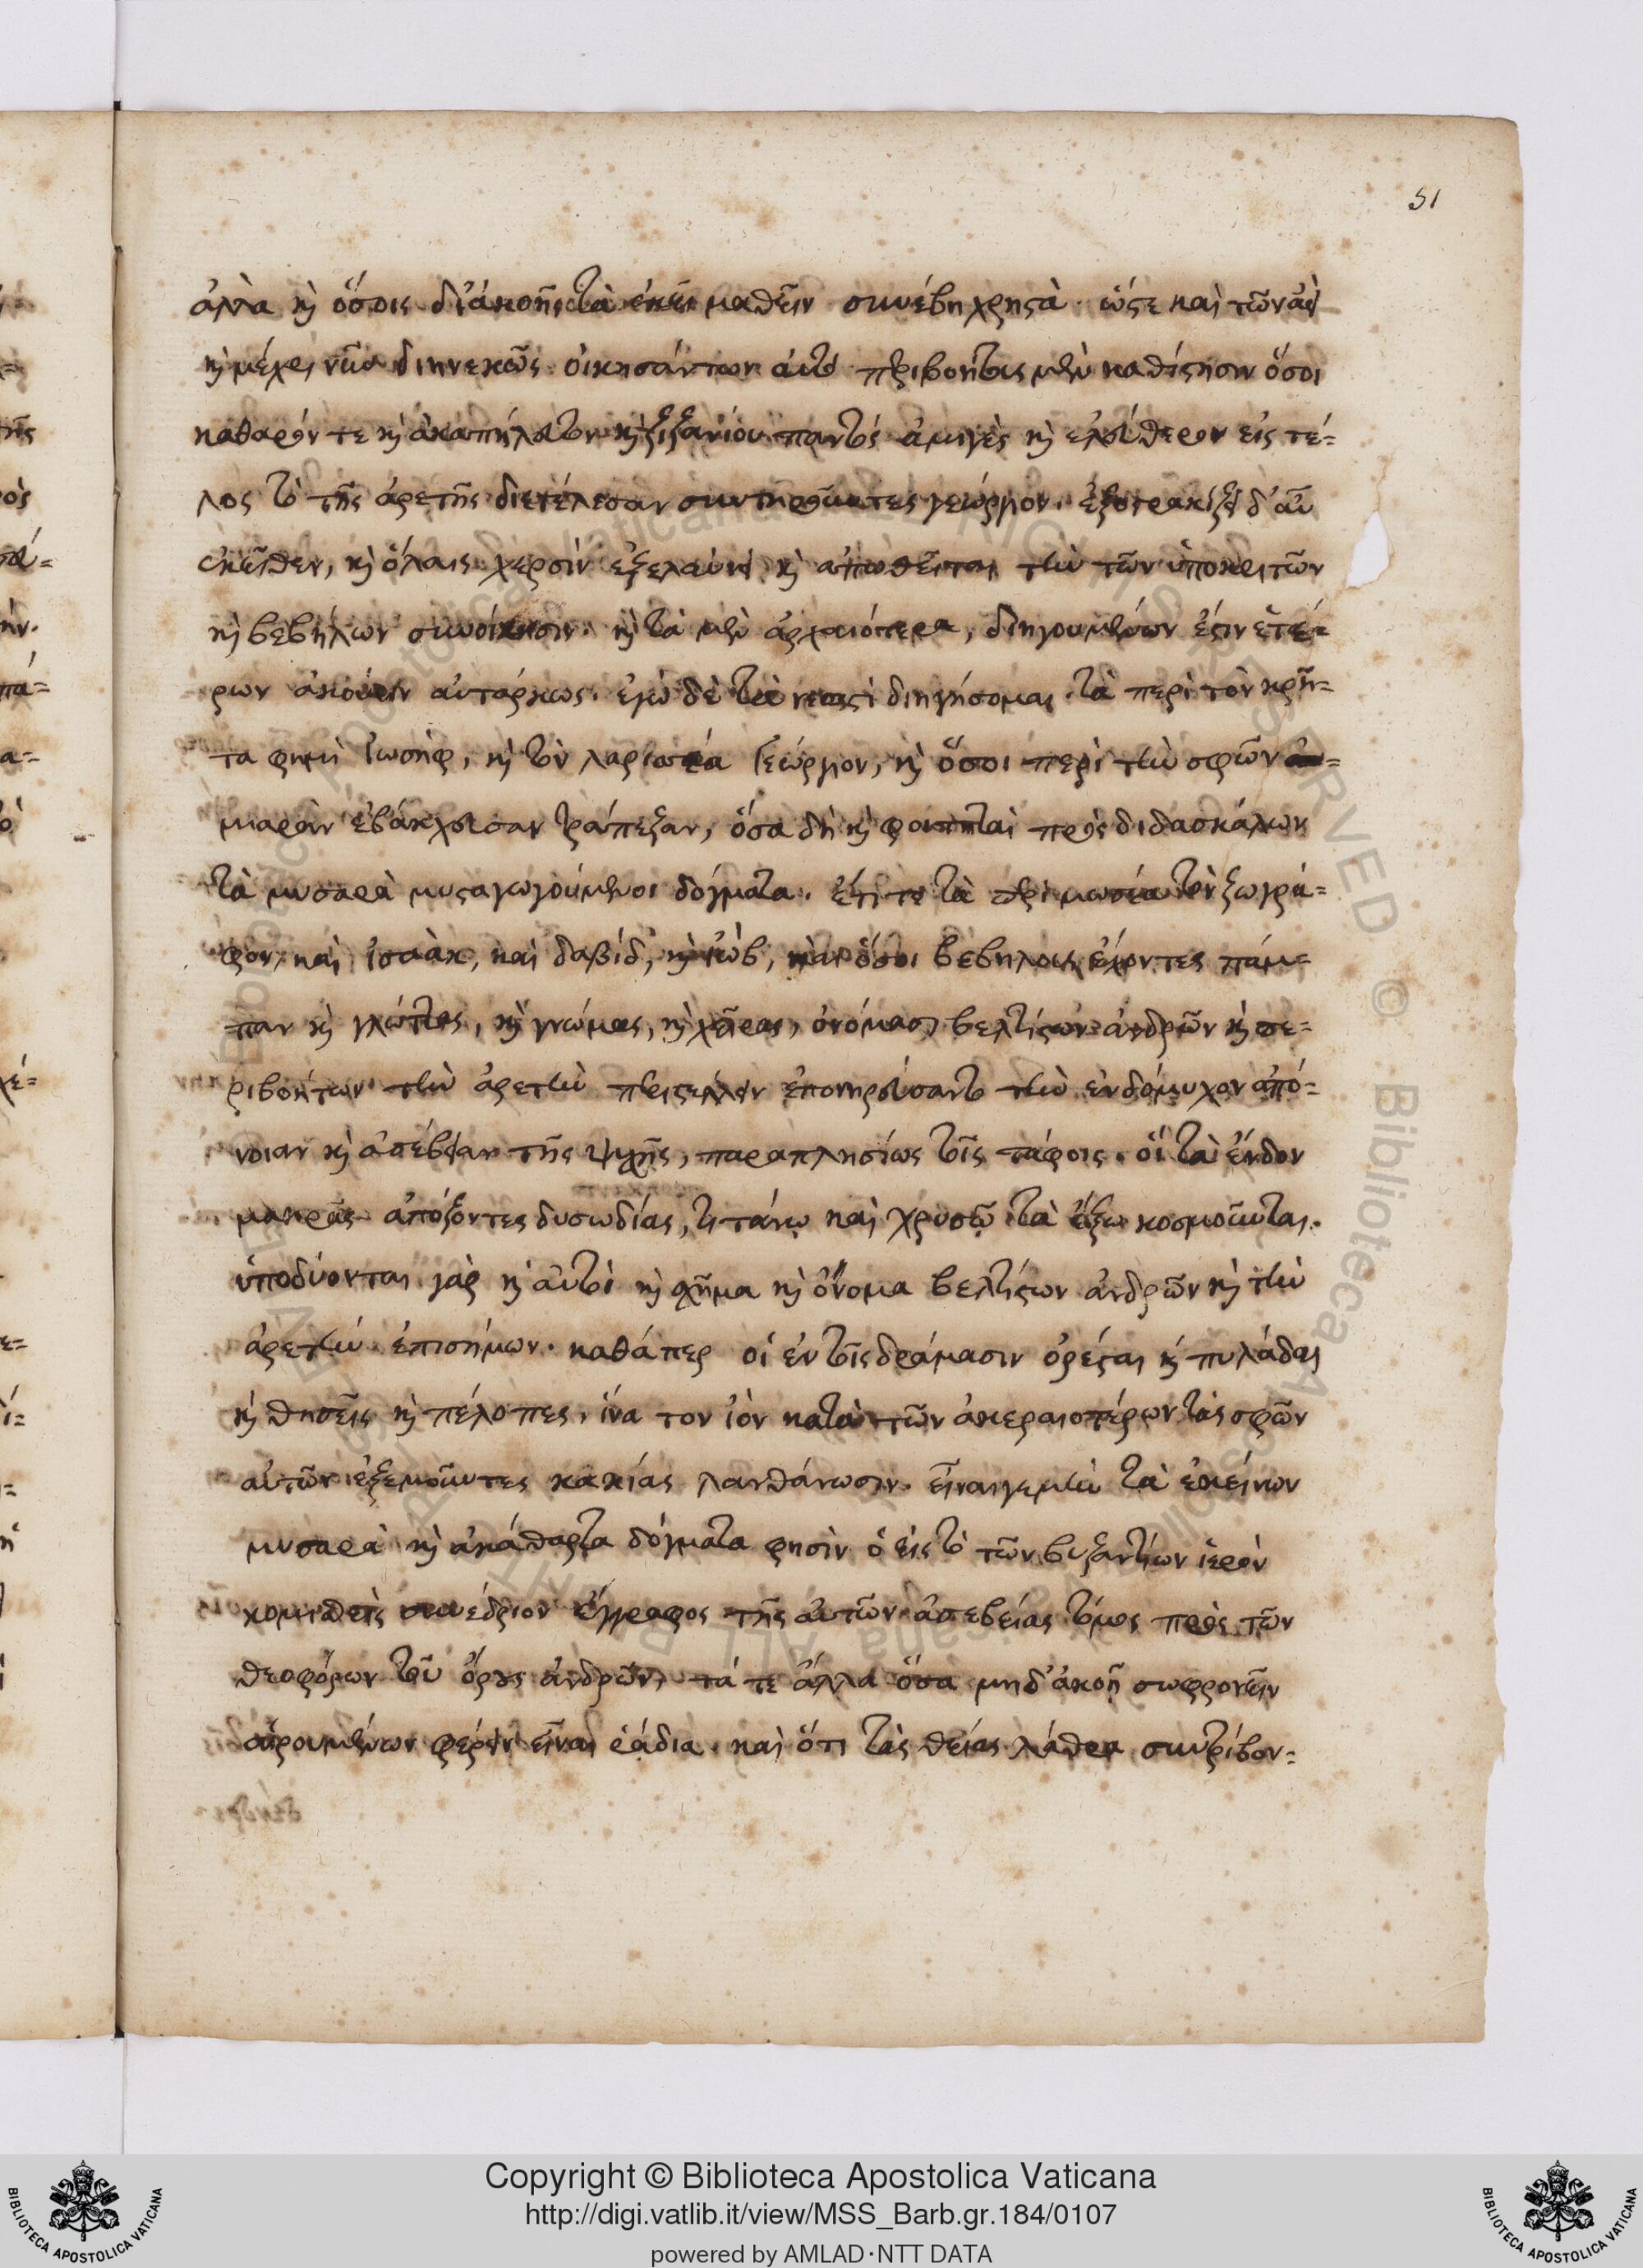 51
ἀλλὰ κὶ ὅσοις δι' ἀκοῆς τὰ ἐκεῖ μαθεῖν συνέβη χρηστά. ὥστε καὶ τῶν ἀεὶ
κὶ μέχρι νῦν διηνεκῶς οἰκησάντων αὐτὸ περιβοήτους μὲν καθίστησιν ὅσοι
καθαρόν τε κὶ ἀκαπήλευτον κὶ ζιζανίου παντὸς ἀμιγὲς κὶ ἐλεύθερον εἰς τέ=
λος τὸ τῆς ἀρετῆς διετέλεσαν συντηροῦντες γεώργιον. ἐξοστρακίζει δ' αὖ
ἐκεῖθεν, κὶ ὅλαις χερσὶν ἐξελαύνει κὶ ἀπωθεῖται τὴν τῶν ὑποκριτῶν
κὶ βεβήλων συνοίκησιν. κὶ τὰ μὲν ἀρχαιότερα, διηγουμένων ἔστιν ἑτέ=
ρων ἀκούειν αὐτάρκως. ἐγὼ δὲ τὰ νεωστὶ διηγήσομαι. τὰ περὶ τὸν κρῆ=
τα φημὶ Ἰωσήφ, κὶ τὸν λαρισσέα Γεώργιον, κὶ ὅσοι περὶ τὴν σφῶν
μιαρὰν ἐβάκχευσαν τράπεζαν, ὅσα δὴ κὶ φοιτηταὶ πρὸς διδασκάλων
τὰ μυσαρὰ μυσταγωγούμενοι δόγματα. ἔτι τε τὰ περὶ μωσέα τὸν ζωγρά=
φον, καὶ ἰσαὰκ, καὶ δαβίδ, κὶ ἰὼβ, κὶ ὅσοι βεβήλους ἔχοντες πάμ=
παν κὶ γλώττας, κὶ γνώμας, κὶ χεῖρας, ὀνόμασι βελτίστων ἀνδρῶν κὶ πε=
ριβοήτων τὴν ἀρετὴν περιστέλλειν ἐπονηρεύσαντο τὴν ἐνδόμυχον ἀπό=
νοιαν κὶ ἀσέβειαν τῆς ψυχῆς, παραπλησίως τοῖς τάφοις. οἳ τὰ ἔνδον
μακρᾶς ἀπόζοντες δυσωδίας, τιτάνῳ καὶ χρυσῷ τὰ ἔξω κοσμοῦνται.
ὑποδύονται γὰρ κὶ αὐτοὶ κὶ σχῆμα κὶ ὄνομα βελτίστων ἀνδρῶν κὶ τὴν
ἀρετὴν ἐπισήμων. καθάπερ οἱ ἐν τοῖς δράμασιν ὀρέσται κὶ πυλάδαι
κὶ θησεῖς κὶ πέλοπες, ἵνα τον ἰὸν κατὰ τῶν ἀκεραιοτέρων τὰς σφῶν
αὐτῶν ἐξεμοῦντες κακίας λανθάνωσιν. εἶναι γεμὴν τὰ ἐκείνων
μυσαρὰ κὶ ἀκάθαρτα δόγματα φησὶν ὁ εἰς τὸ τῶν βυζαντίων ἱερὸν
κομισθεὶς συνέδριον ἔγγραφος τῆς αὐτῶν ἀσεβείας τόμος πρὸς τῶν
θεοφόρων τοῦ ὄρους ἀνδρῶν, τά τε ἄλλα ὅσα μηδ' ἀκοῇ σωφρονεῖν
αἱρουμένων φέρειν εἶναι ῥάδια. καὶ ὅτι τὰς θείας λάθρα συντρίβον=